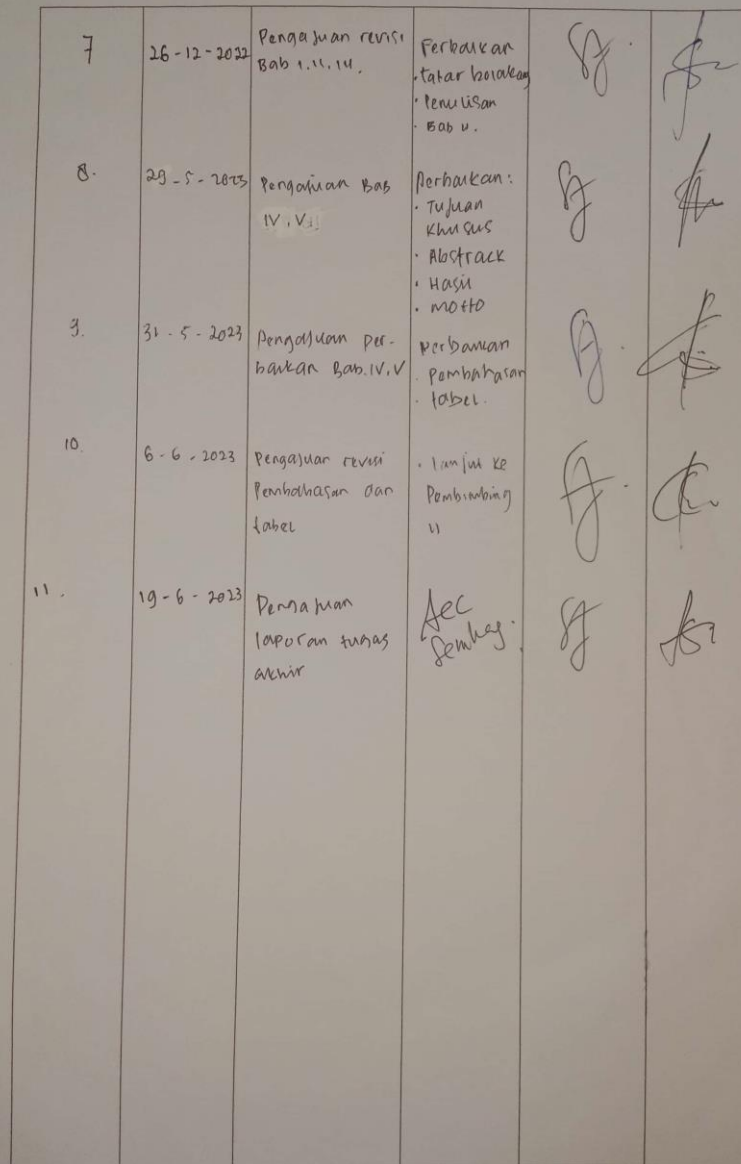 7
26-12-2022
Pengajuan revisi
Bab I.II.III.
Perbaikan
· Latar belakang
· Penulisan
· Bab II.
8.
29-5-2023
Pengajuan Bab
IV, V
Perbaikan:
· Tujuan
Khusus
· Abstrack
· Hasil
· Motto
9.
31-5-2023
Pengajuan Per-
baikan Bab.IV,V
Perbaikan
· Pembahasan
· tabel.
10.
6-6-2023
Pengajuan revisi
Pembahasan dan
tabel
· lanjut ke
Pembimbing
II
11.
19-6-2023
Pengajuan
laporan tugas
akhir
Acc
Semhas.